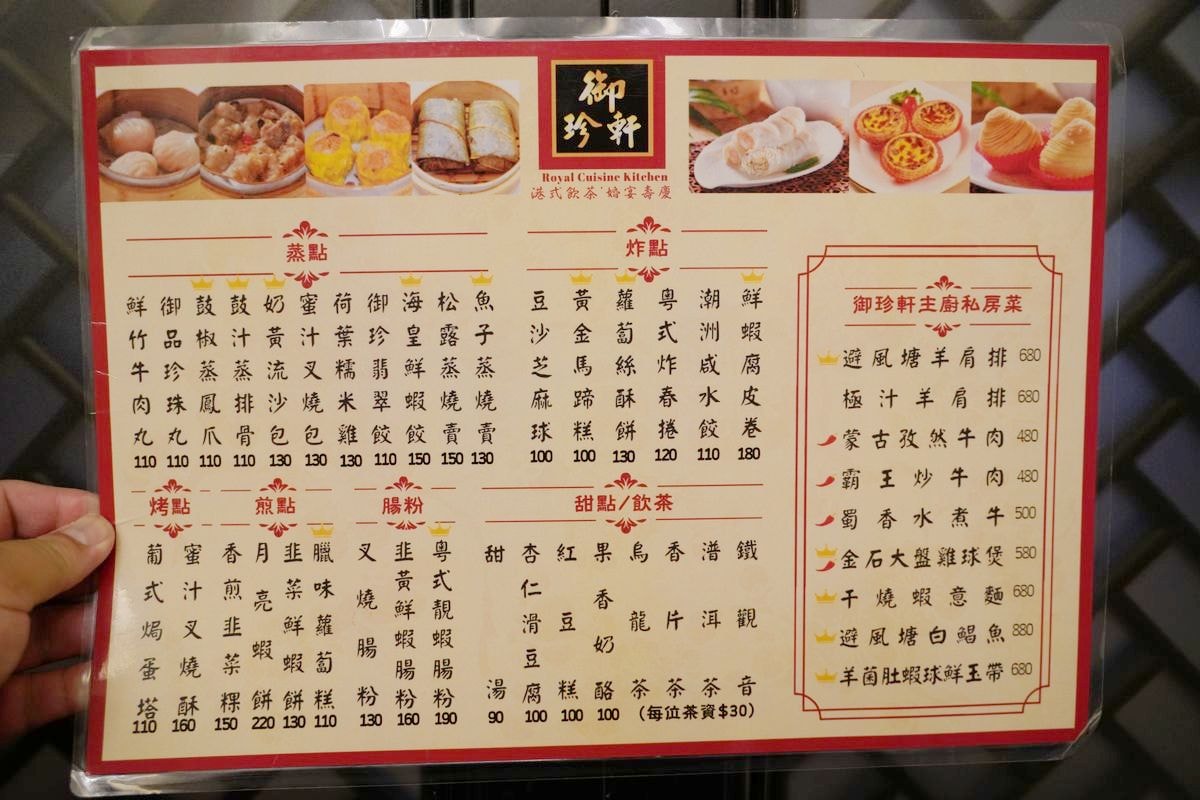 御珍軒
Royal Cuisine Kitchen
港式飲茶 婚宴壽慶
蒸點
鮮竹牛肉丸 110
御品珍珠丸 110
鼓椒蒸鳳爪 110
鼓汁蒸排骨 110
奶黃流沙包 130
蜜汁叉燒包 130
荷葉糯米雞 130
御珍翡翠餃 110
海皇鮮蝦餃 150
松露蒸燒賣 150
魚子蒸燒賣 130
炸點
豆沙芝麻球 100
黃金馬蹄糕 100
蘿蔔絲酥餅 130
粵式炸春捲 120
潮洲咸水餃 110
鮮蝦腐皮卷 180
烤點
葡式焗蛋塔 110
蜜汁叉燒酥 160
煎點
香煎韭菜粿 150
月亮蝦餅 220
韭菜鮮蝦餅 130
臘味蘿蔔糕 110
腸粉
叉燒腸粉 130
韭黃鮮蝦腸粉 160
粵式靚蝦腸粉 190
甜點/飲茶
甜湯 90
杏仁滑豆腐 100
紅豆糕 100
果香奶酪 100
烏龍茶
香片茶
潽洱茶
鐵觀音
(每位茶資$30)
御珍軒主廚私房菜
避風塘羊肩排 680
極汁羊肩排 680
蒙古孜然牛肉 480
霸王炒牛肉 480
蜀香水煮牛 500
金石大盤雞球煲 580
干燒蝦意麵 680
避風塘白鯧魚 880
羊菌肚蝦球鮮玉帶 680